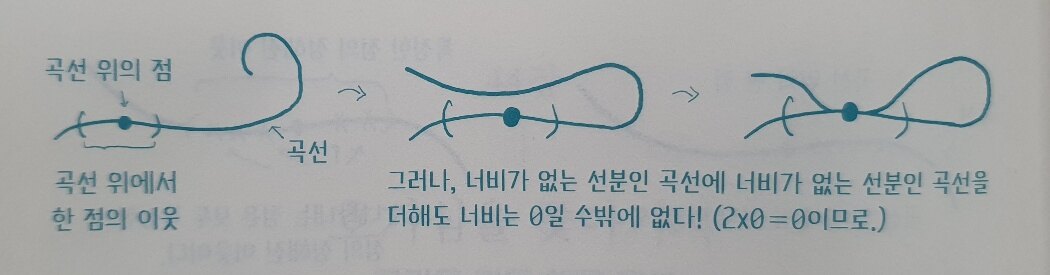 곡선 위의 점
곡선
곡선 위에서
한 점의 이웃
그러나, 너비가 없는 선분인 곡선에 너비가 없는 선분인 곡선을
더해도 너비는 0일 수밖에 없다! (2x0=0이므로.)